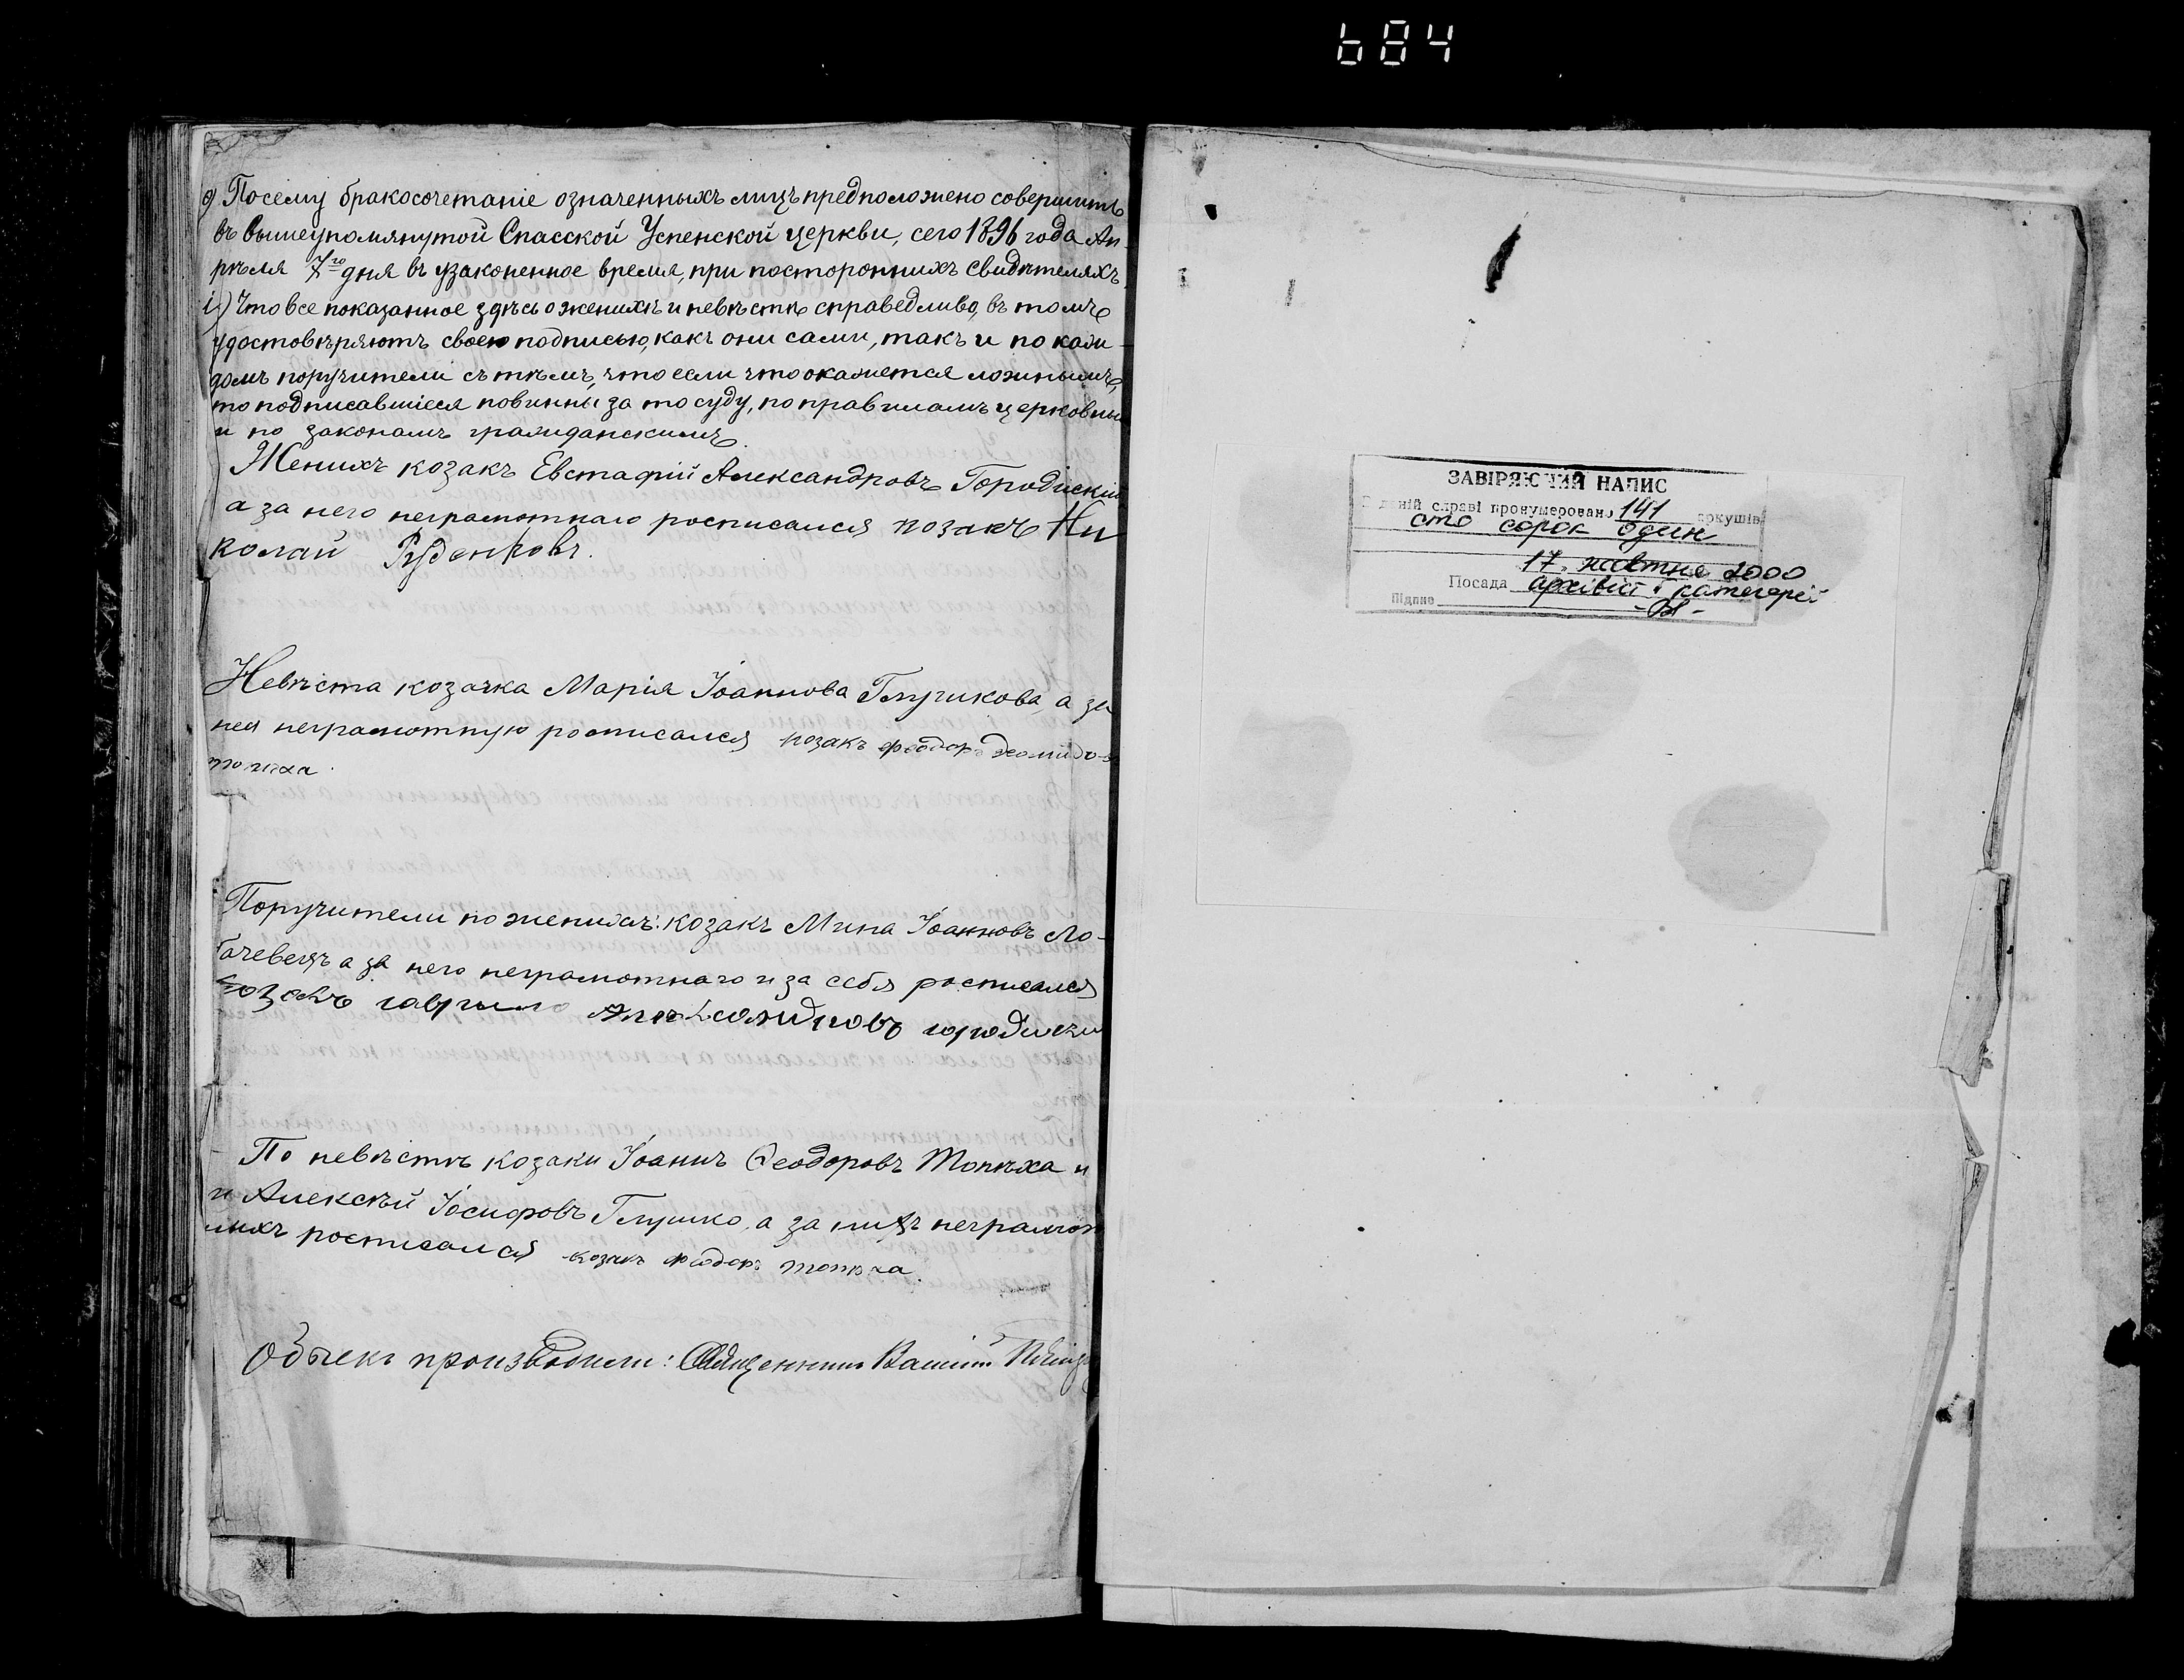 684
Посему бракосочетаніе означенныхъ лицъ предположено совершить
въ вышеупомянутой Спасской Успенской церкви, сего 1896 года Ап-
рѣля 7го дня въ узаконенное время, при постороннихъ свидѣтеляхъ.
і) Что все показанное здѣсь о женихѣ и невѣстѣ справедливо, въ томъ
удостовѣряютъ своею подписью, какъ они сами, такъ и по каж-
домъ поручители съ тѣмъ, что если что окажется ложнымъ,
то подписавшіеся повинны за то суду, по правиламъ церковны
и по законамъ гражданскимъ.
Женихъ козакъ Евстафій Александровъ Городискій
а за него неграмотнаго росписался козакъ Ни
колай Руденковъ.
Невѣста козачка Марія Іоаннова Глушкова, а за
нея неграмотную росписался козакъ феодоръ
топиха.
Поручители по женихѣ: козакъ Мина Іоанновъ Ло-
бачевецъ а за него неграмотнаго и за себя росписался
козакъ гаврыло городиски
По невѣстѣ козаки Іоаннъ Ѳеодоровъ Топѣха и
и Алексѣй Іосифовъ Глушко, а за нихъ неграмот
ныхъ росписался козакъ феодоръ топѣха.
Обыскъ производили: Священникъ
ЗАВІРЯЮЧИЙ НАПИС
В даній справі пронумеровано 141 аркушів
сто сорок один
17 жовтня 2000
Посада архівіст І категорії
Підпис